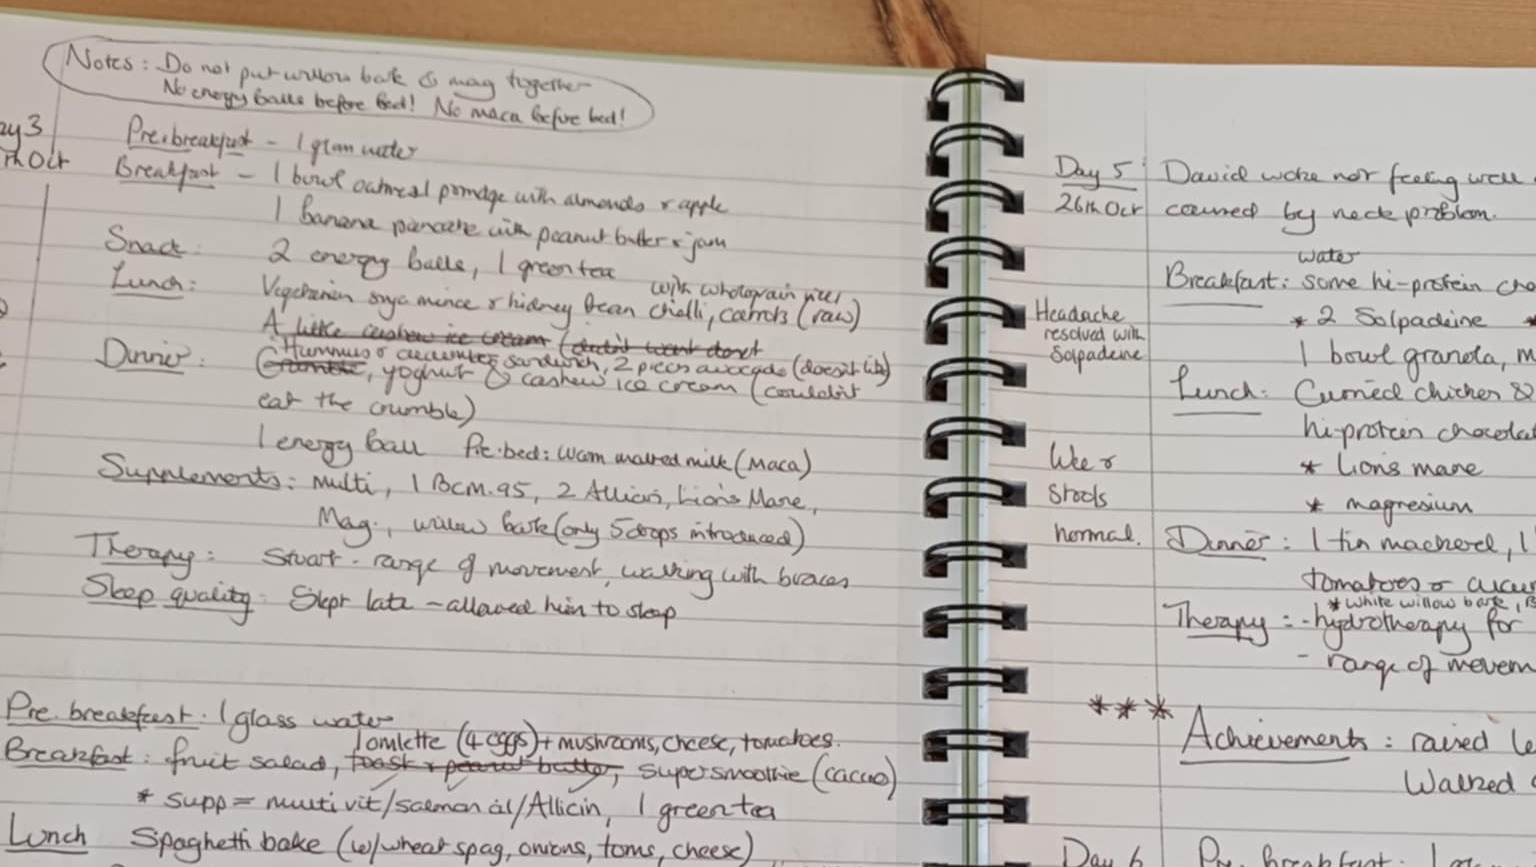 Notes: Do not put willow bark & mag together
No energy balls before bed! No maca before bed!
ay 3
th Oct
Pre-breakfast - 1 glass water
Breakfast - 1 bowl oatmeal porridge with almonds & apple
1 banana pancake with peanut butter & jam
Snack: 2 energy balls, 1 green tea
Lunch: Vegetarian soya mince & kidney bean chilli, carrots (raw)
with wholegrain rice,
A little cashew ice cream (didn't want dont
Hummus & cucumber sandwich, 2 pieces avocado (doesn't like)
Dinner: Crumble, yoghurt & cashew ice cream (couldn't
eat the crumble)
1 energy ball Pre-bed: Warm malted milk (Maca)
Supplements: Multi, 1 BCM.95, 2 Allicin, Lion's Mane,
Mag., willow bark (only 5 drops introduced)
Therapy: Stuart - range of movement, walking with braces
Sleep quality: Slept late - allowed him to sleep
Pre. breakfast. 1 glass water
1 omlette (4 eggs) + mushrooms, cheese, tomatoes.
Breakfast: fruit salad, toast & peanut butter, supersmoothie (cacao)
* supp = multivit/salmon oil/Allicin, 1 green tea
Lunch Spaghetti bake (w/wheat spag, onions, toms, cheese)
Day 5 David woke not feeling well
26th Oct caused by neck problem.
water
Breakfast: some hi-protein cho
* 2 Solpadeine *
Headache
resolved with
Solpadeine
1 bowl granola, m
Lunch: Curried chicken &
hi-protein chocolat
Wee &
Stools
normal.
* Lions mane
* magnesium
Dinner: 1 tin mackerel, 1
tomatoes & cucum
* White willow bark, B
Therapy: - hydrotherapy for
- range of movem
*** Achievements: raised le
Walked
Day 6 Pre. breakfast: 1